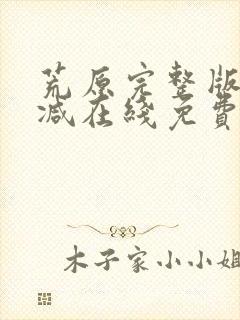 荒原完整版
减在綫免費
木子家小小姐